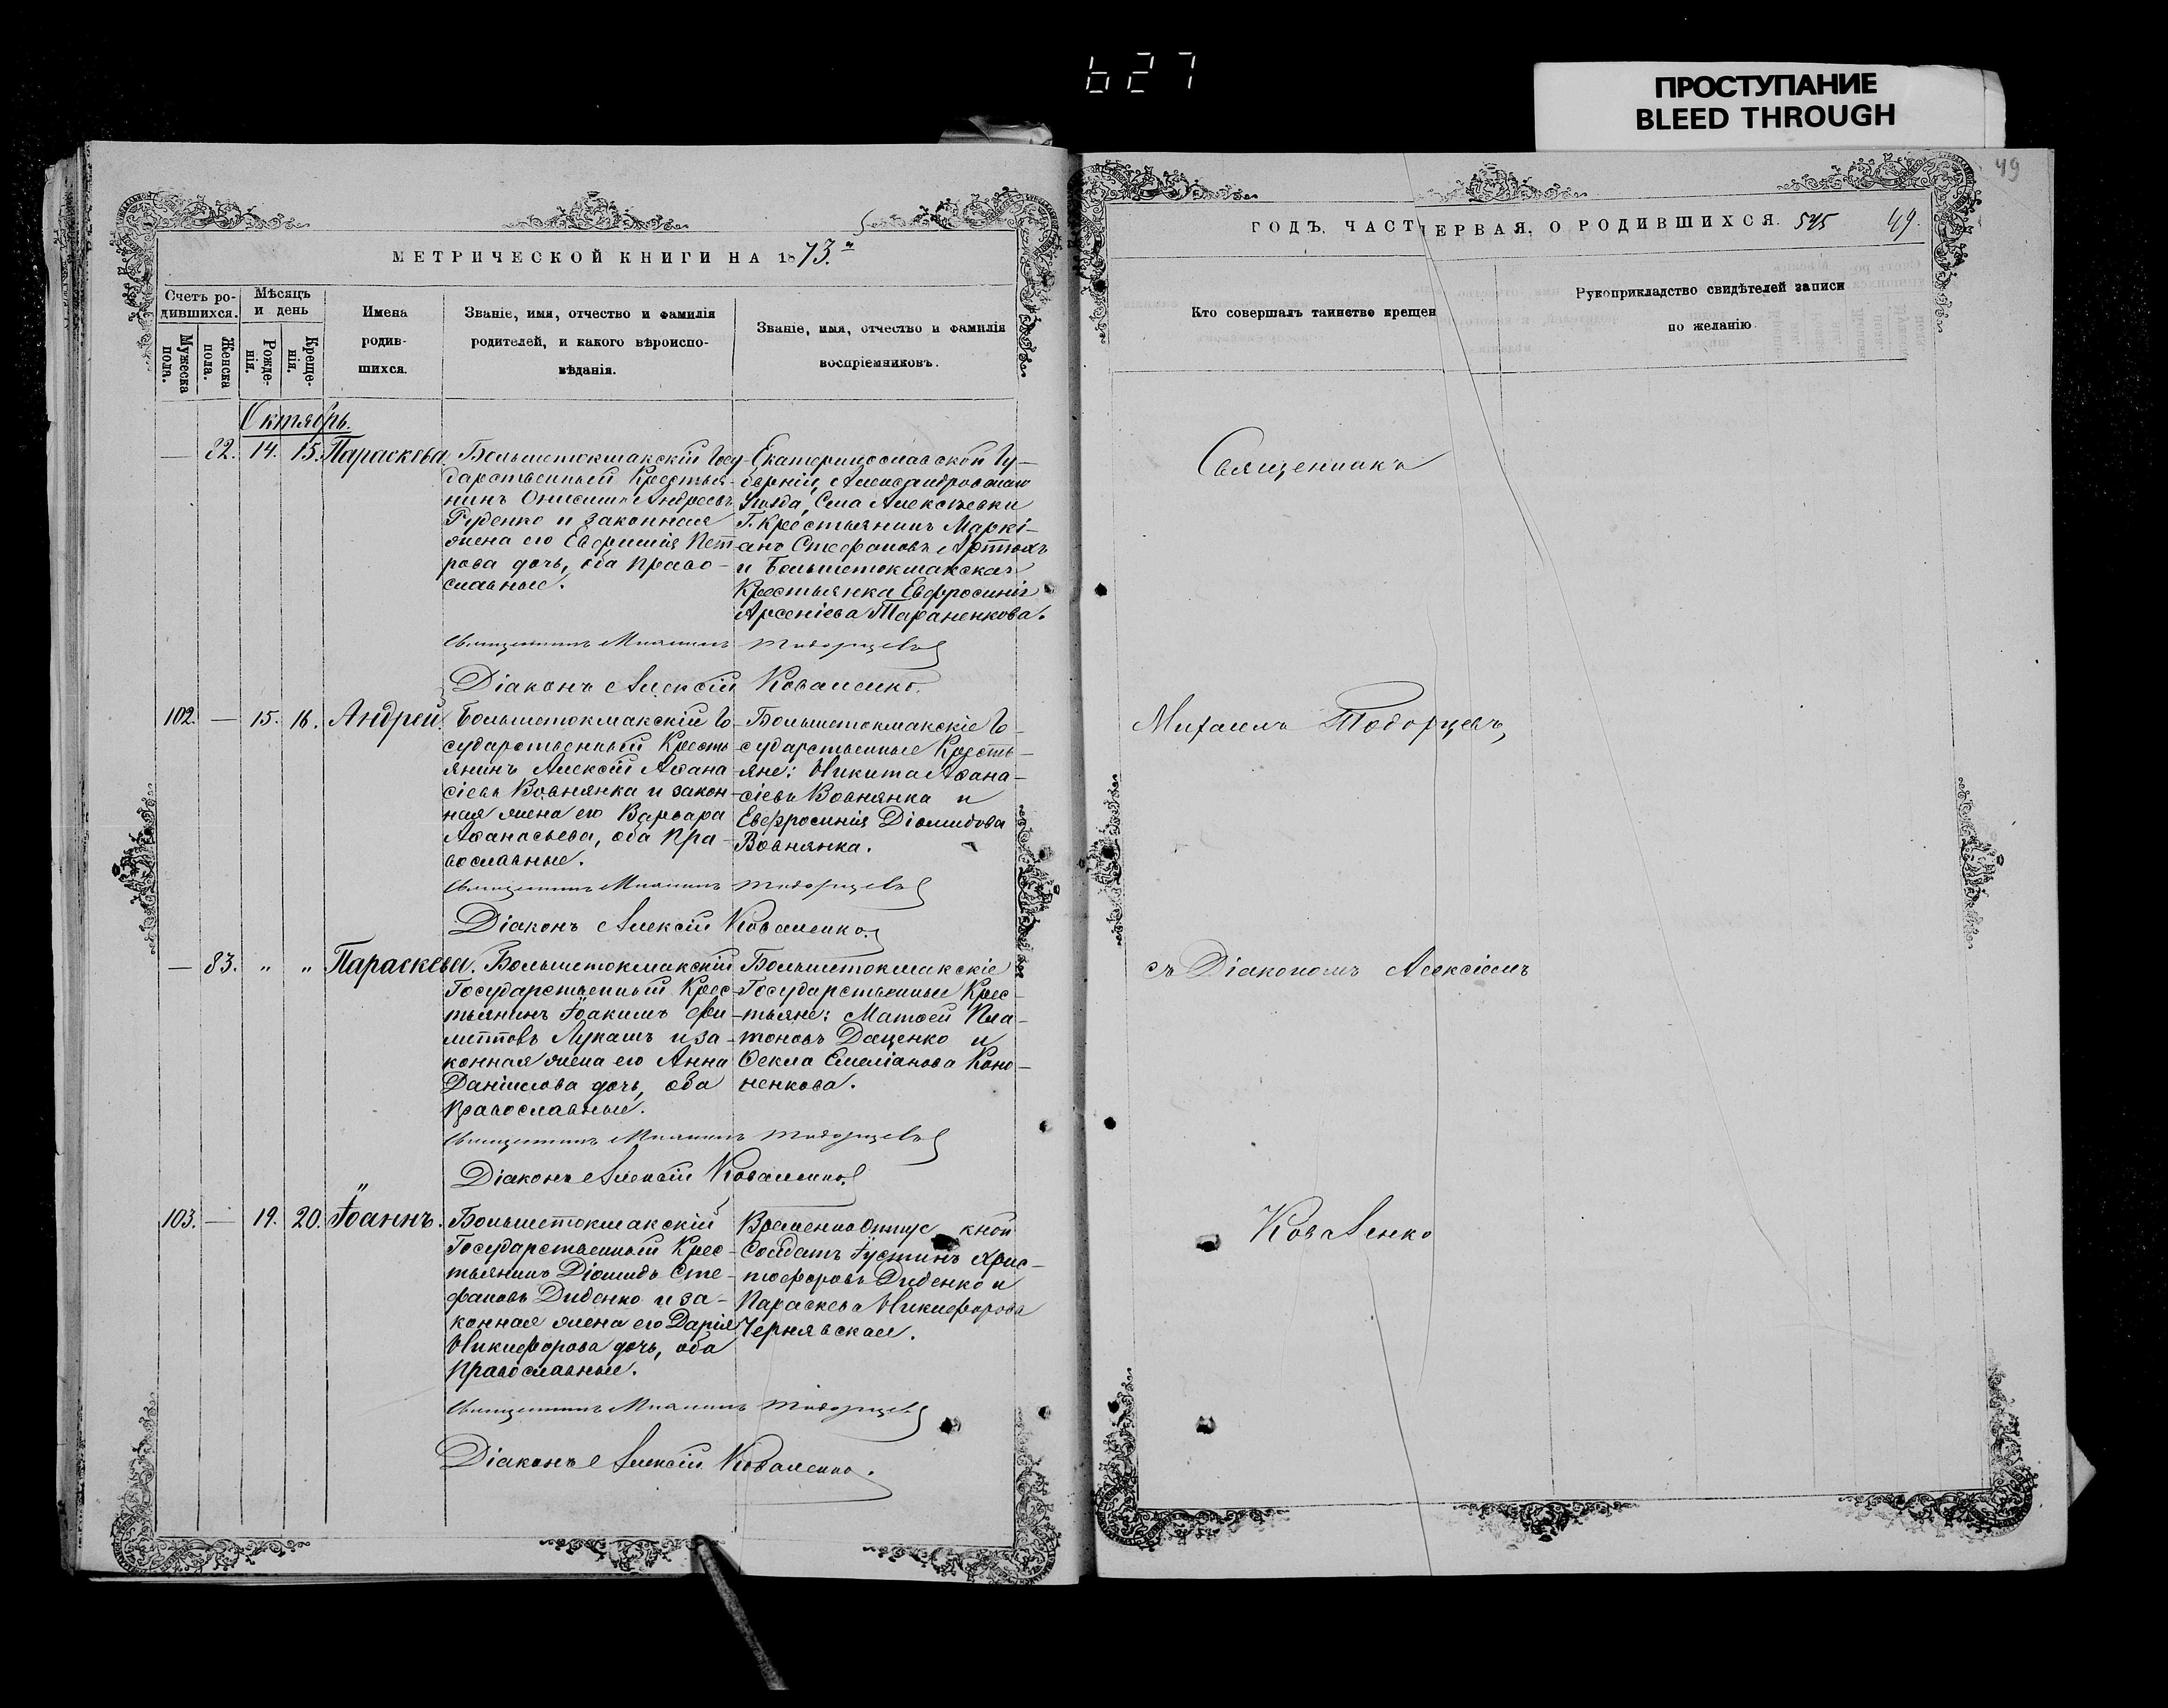 627
ПРОСТУПАНИЕ
BLEED THROUGH
49
МЕТРИЧЕСКОЙ КНИГИ НА 1873.
Счетъ родившихся.
Мужеска пола.
Женска пола.
Мѣсяцъ и день
Рожденія.
Крещенія.
Имена
родив-
шихся.
Званіе, имя, отчество и фамилія
родителей, и какого вѣроиспо-
вѣданія.
Званіе, имя, отчество и фамилія
воспріемниковъ.
Октябрь.
— 82. 14. 15. Параскева.
Большетокмакскій Госу-
дарственный Крестья-
нинъ Онисимъ Андреевъ
Руденко и законная
жена его Евфимія Пет-
рова дочь, оба право-
славные.
Екатеринославской Гу-
берніи, Александровскаго
Уѣзда, Села Алексѣевки
Г. Крестьянинъ Маркі-
анъ Стефановъ Артюхъ
и Большетокмакская
Крестьянка Евфросинія
Арсеніева Тараненкова.
Священникъ Михаилъ Тодорцевъ
Діаконъ Алексій Коваленко.
102. — 15. 16. Андрей.
Большетокмакскій Го-
сударственный Кресть-
янинъ Алексій Аѳана-
сіевъ Вовнянка и закон-
ная жена его Варвара
Аѳанасьева, оба пра-
вославные.
Большетокмакскіе Го-
сударственные Кресть-
яне: Никита Аѳана-
сіевъ Вовнянка и
Евфросинія Діомидова
Вовнянка.
Священникъ Михаилъ Тодорцевъ
Діаконъ Алексій Коваленко.
— 83. " " Параскева.
Большетокмакскій
Государственный Крес-
тьянинъ Іоакимъ Фи-
липповъ Лукашъ и за-
конная жена его Анна
Даніилова дочь, оба
православные.
Большетокмакскіе
Государственные Крес-
тьяне: Матѳей Пла-
тоновъ Даценко и
Ѳекла Емеліанова Коно-
ненкова.
Священникъ Михаилъ Тодорцевъ
Діаконъ Алексій Коваленко.
103. — 19. 20. Іоаннъ.
Большетокмакскій
Государственный Крес-
тьянинъ Діомидъ Сте-
фановъ Диденко и за-
конная жена его Дарія
Никифорова дочь, оба
православные.
Временно Отпускной
Солдатъ Іустинъ Хрис-
тофоровъ Диденко и
Параскева Никифорова
Чернявская.
Священникъ Михаилъ Тодорцевъ
Діаконъ Алексій Коваленко.
ГОДЪ, ЧАСТ ПЕРВАЯ, О РОДИВШИХСЯ. 49.
Кто совершалъ таинство крещен
Рукоприкладство свидѣтелей записи
по желанію.
Священникъ
Михаилъ Тодорцевъ,
съ Діакономъ Алексіемъ
Коваленко